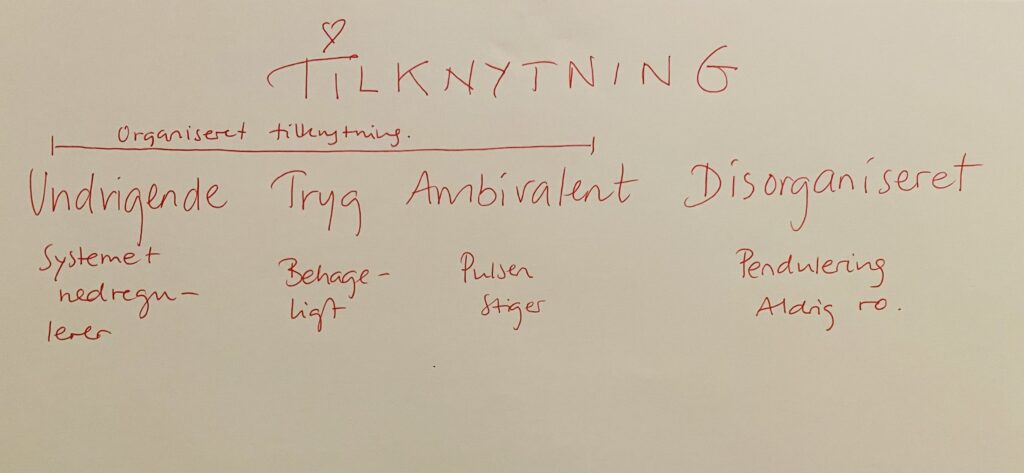 TILKNYTNING
Organiseret tilknytning.
Undvigende Tryg Ambivalent Disorganiseret
Systemet
nedregu-
lerer
Behage-
ligt
Pulsen
Stiger
Pendulering
Aldrig ro.